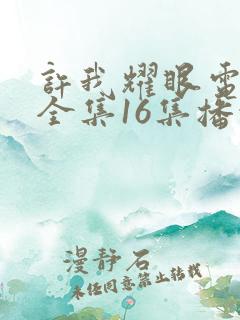 許我耀眼電
全集16集播
漫静石
未经同意禁止转载